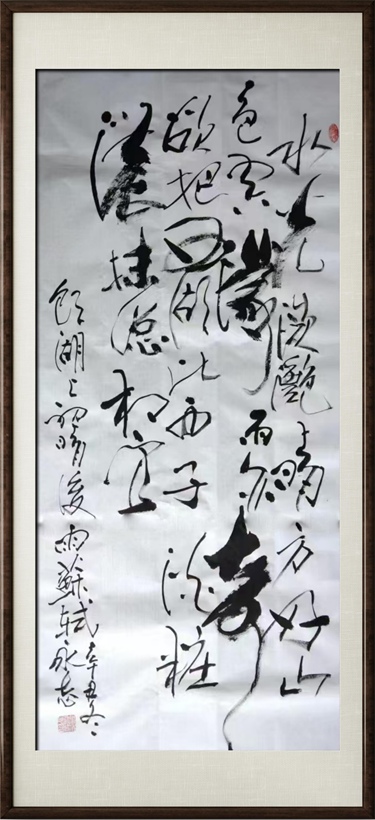 水光潋滟晴方好山
色空蒙雨亦奇
欲把西湖比西子淡粧
濃抹總相宜
飲湖上初晴後雨蘇軾永志
辛丑冬